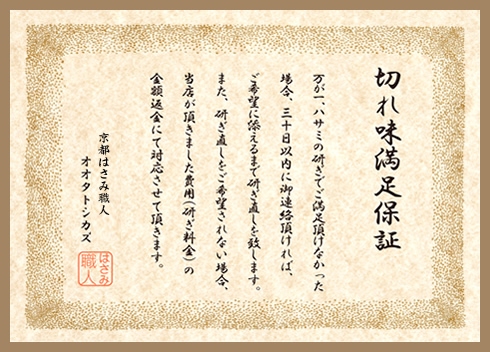 切れ味満足保証
万が一、ハサミの研ぎでご満足頂けなかった
場合、三十日以内に御連絡頂ければ、
ご希望に添えるまで研ぎ直しを致します。
また、研ぎ直しをご希望されない場合、
当店が頂きました費用(研ぎ料金)の
全額返金にて対応させて頂きます。
京都はさみ職人
オオタトシカズ
はさみ
職人